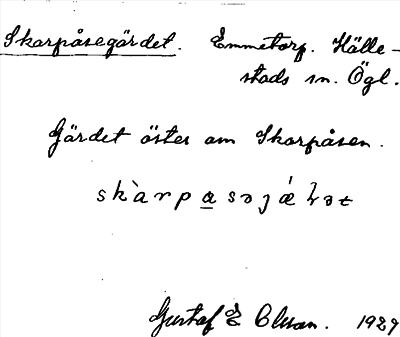 Skarpåsegärdet. Emmetorp. Hälle-
stads sn. Ögl.
Gärdet öster om Skarpåsen.
Gustaf E Olsson. 1929